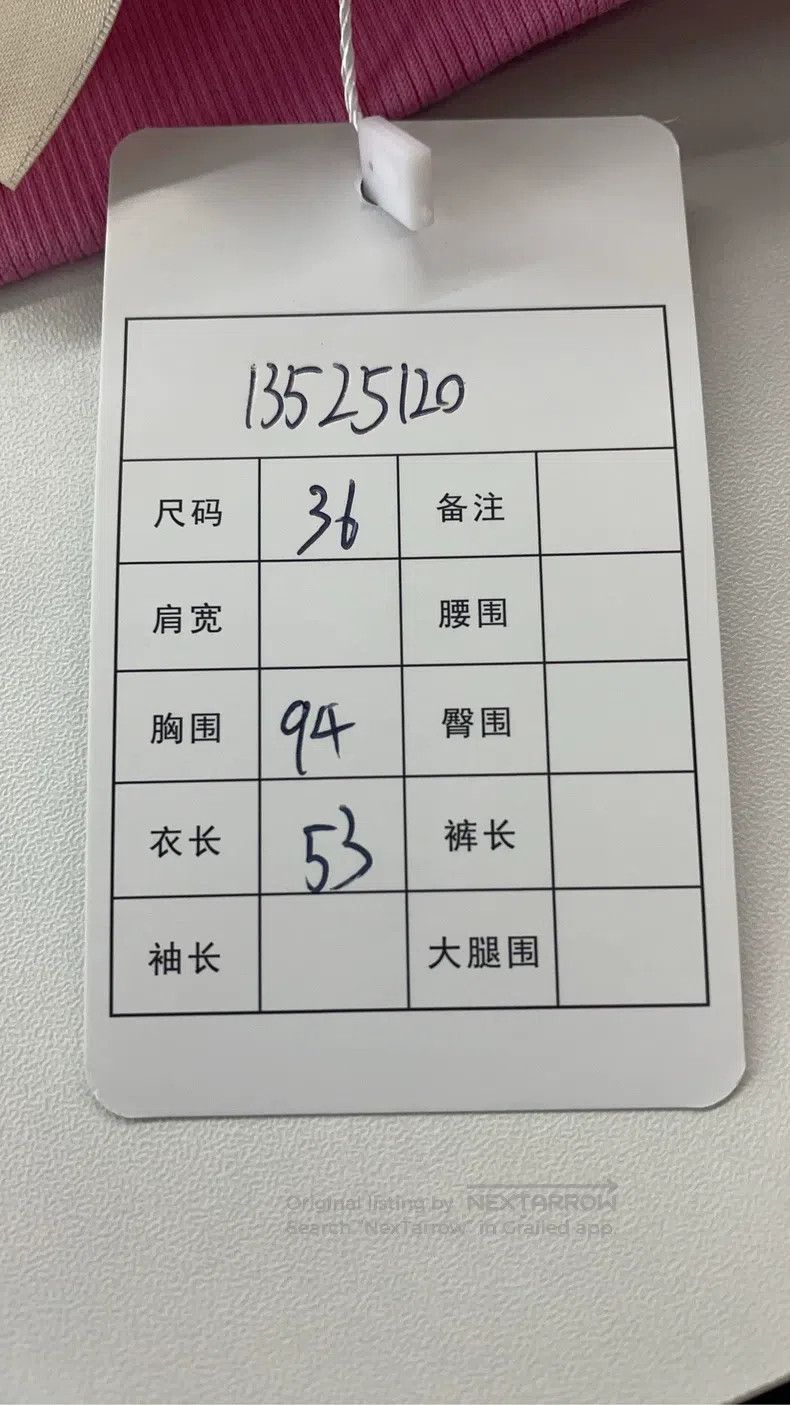 13525120
尺码 36 备注
肩宽 腰围
胸围 94 臀围
衣长 53 裤长
袖长 大腿围
Original listing by NEXTARROW
Search "NexTarrow" in Grailed app